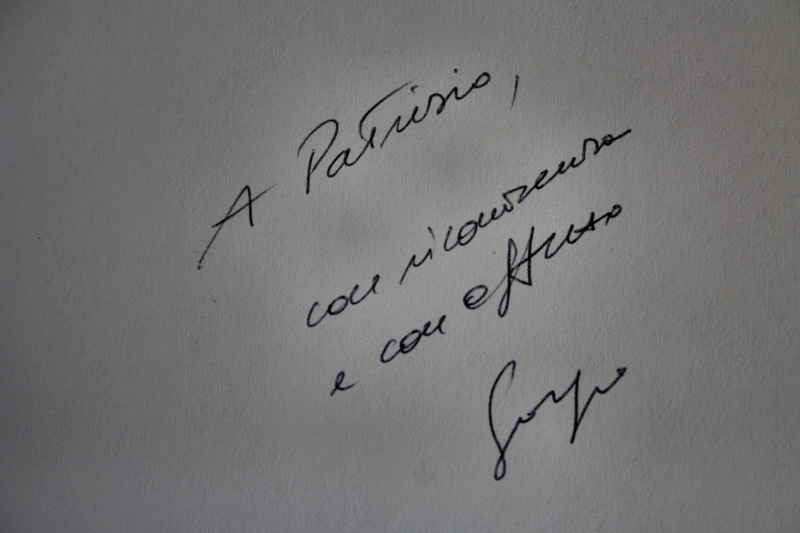 A Patrizio,
con riconoscenza
e con affetto
Giorgio